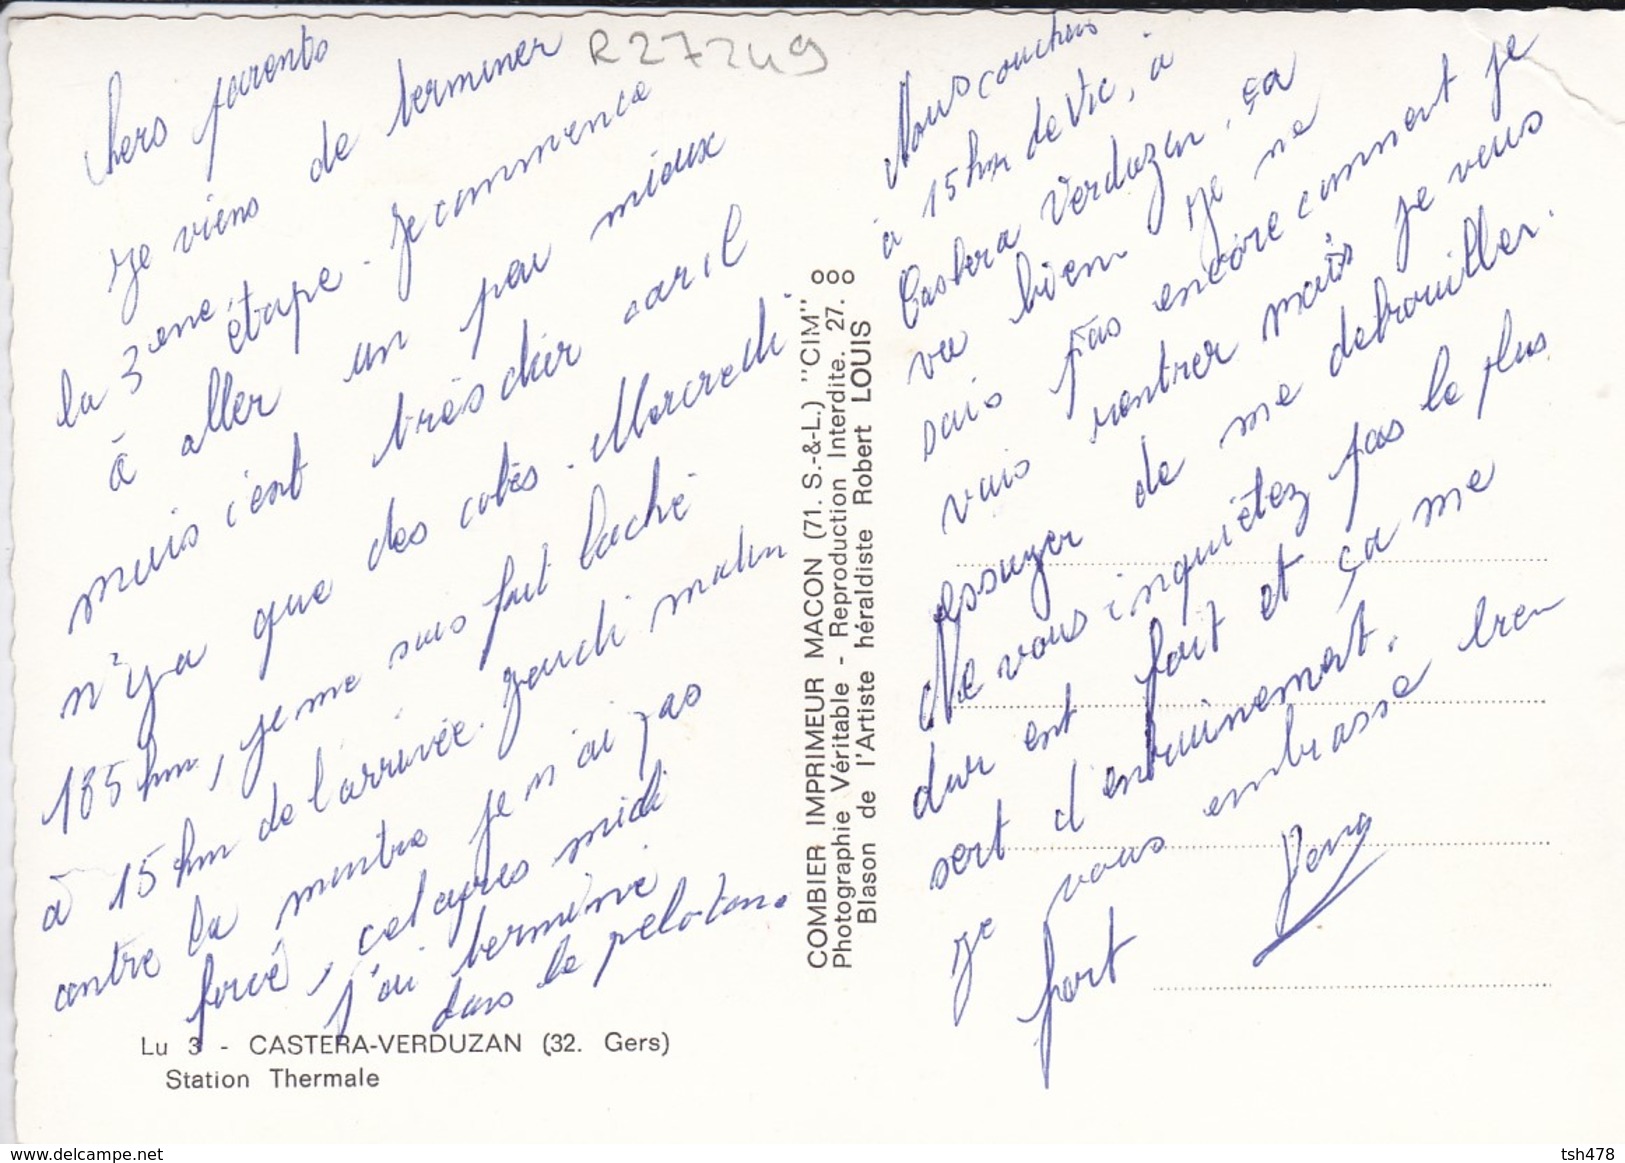 R27249
Chers parents
Je viens de terminer
la 3ème étape. Je commence
à aller un peu mieux
mais c'est très dur car il
n'y a que des côtes. Mercredi
185 km, je me suis fait laché
à 15 km de l'arrivée. Jeudi matin
contre la montre je n'ai pas
forcé, cet après midi
j'ai terminé
dans le peloton.
Lu 3 - CASTERA-VERDUZAN (32. Gers)
Station Thermale
COMBIER IMPRIMEUR MACON (71. S.-&-L.) "CIM"
Photographie Véritable - Reproduction Interdite. 27.
Blason de l'Artiste héraldiste Robert LOUIS
Nous couchons
à 15 km de Vic, à
Castera Verduzan. ça
va bien je ne
sais pas encore comment je
vais rentrer mais je vais
essayer de me debrouiller.
Ne vous inquiétez pas le plus
dur est fait et ça me
sert d'entrainement.
Je vous embrasse bien
fort
delcampe.net
tsh478